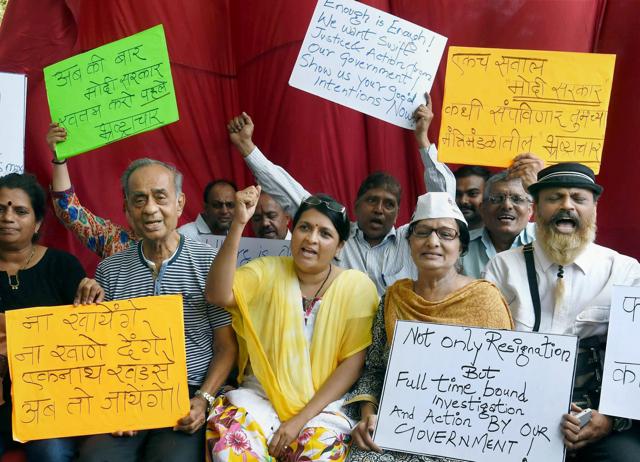 अब की बार
मोदी सरकार
खतम करो पहले
भ्रष्टाचार
Enough is Enough!
We want Swift
Justice & Action from
Our Government
Show us your Good
Intentions Now
एकच सवाल
"मोदी सरकार"
कधी संपविणार तुमच्या
मंत्रिमंडळातील भ्रष्टाचार
ना खायेंगे
ना खाणे देंगे!
एकनाथ खडसे
अब तो जायेंगे!
Not only Resignation
But
Full time bound
Investigation
And Action By our
GOVERNMENT!